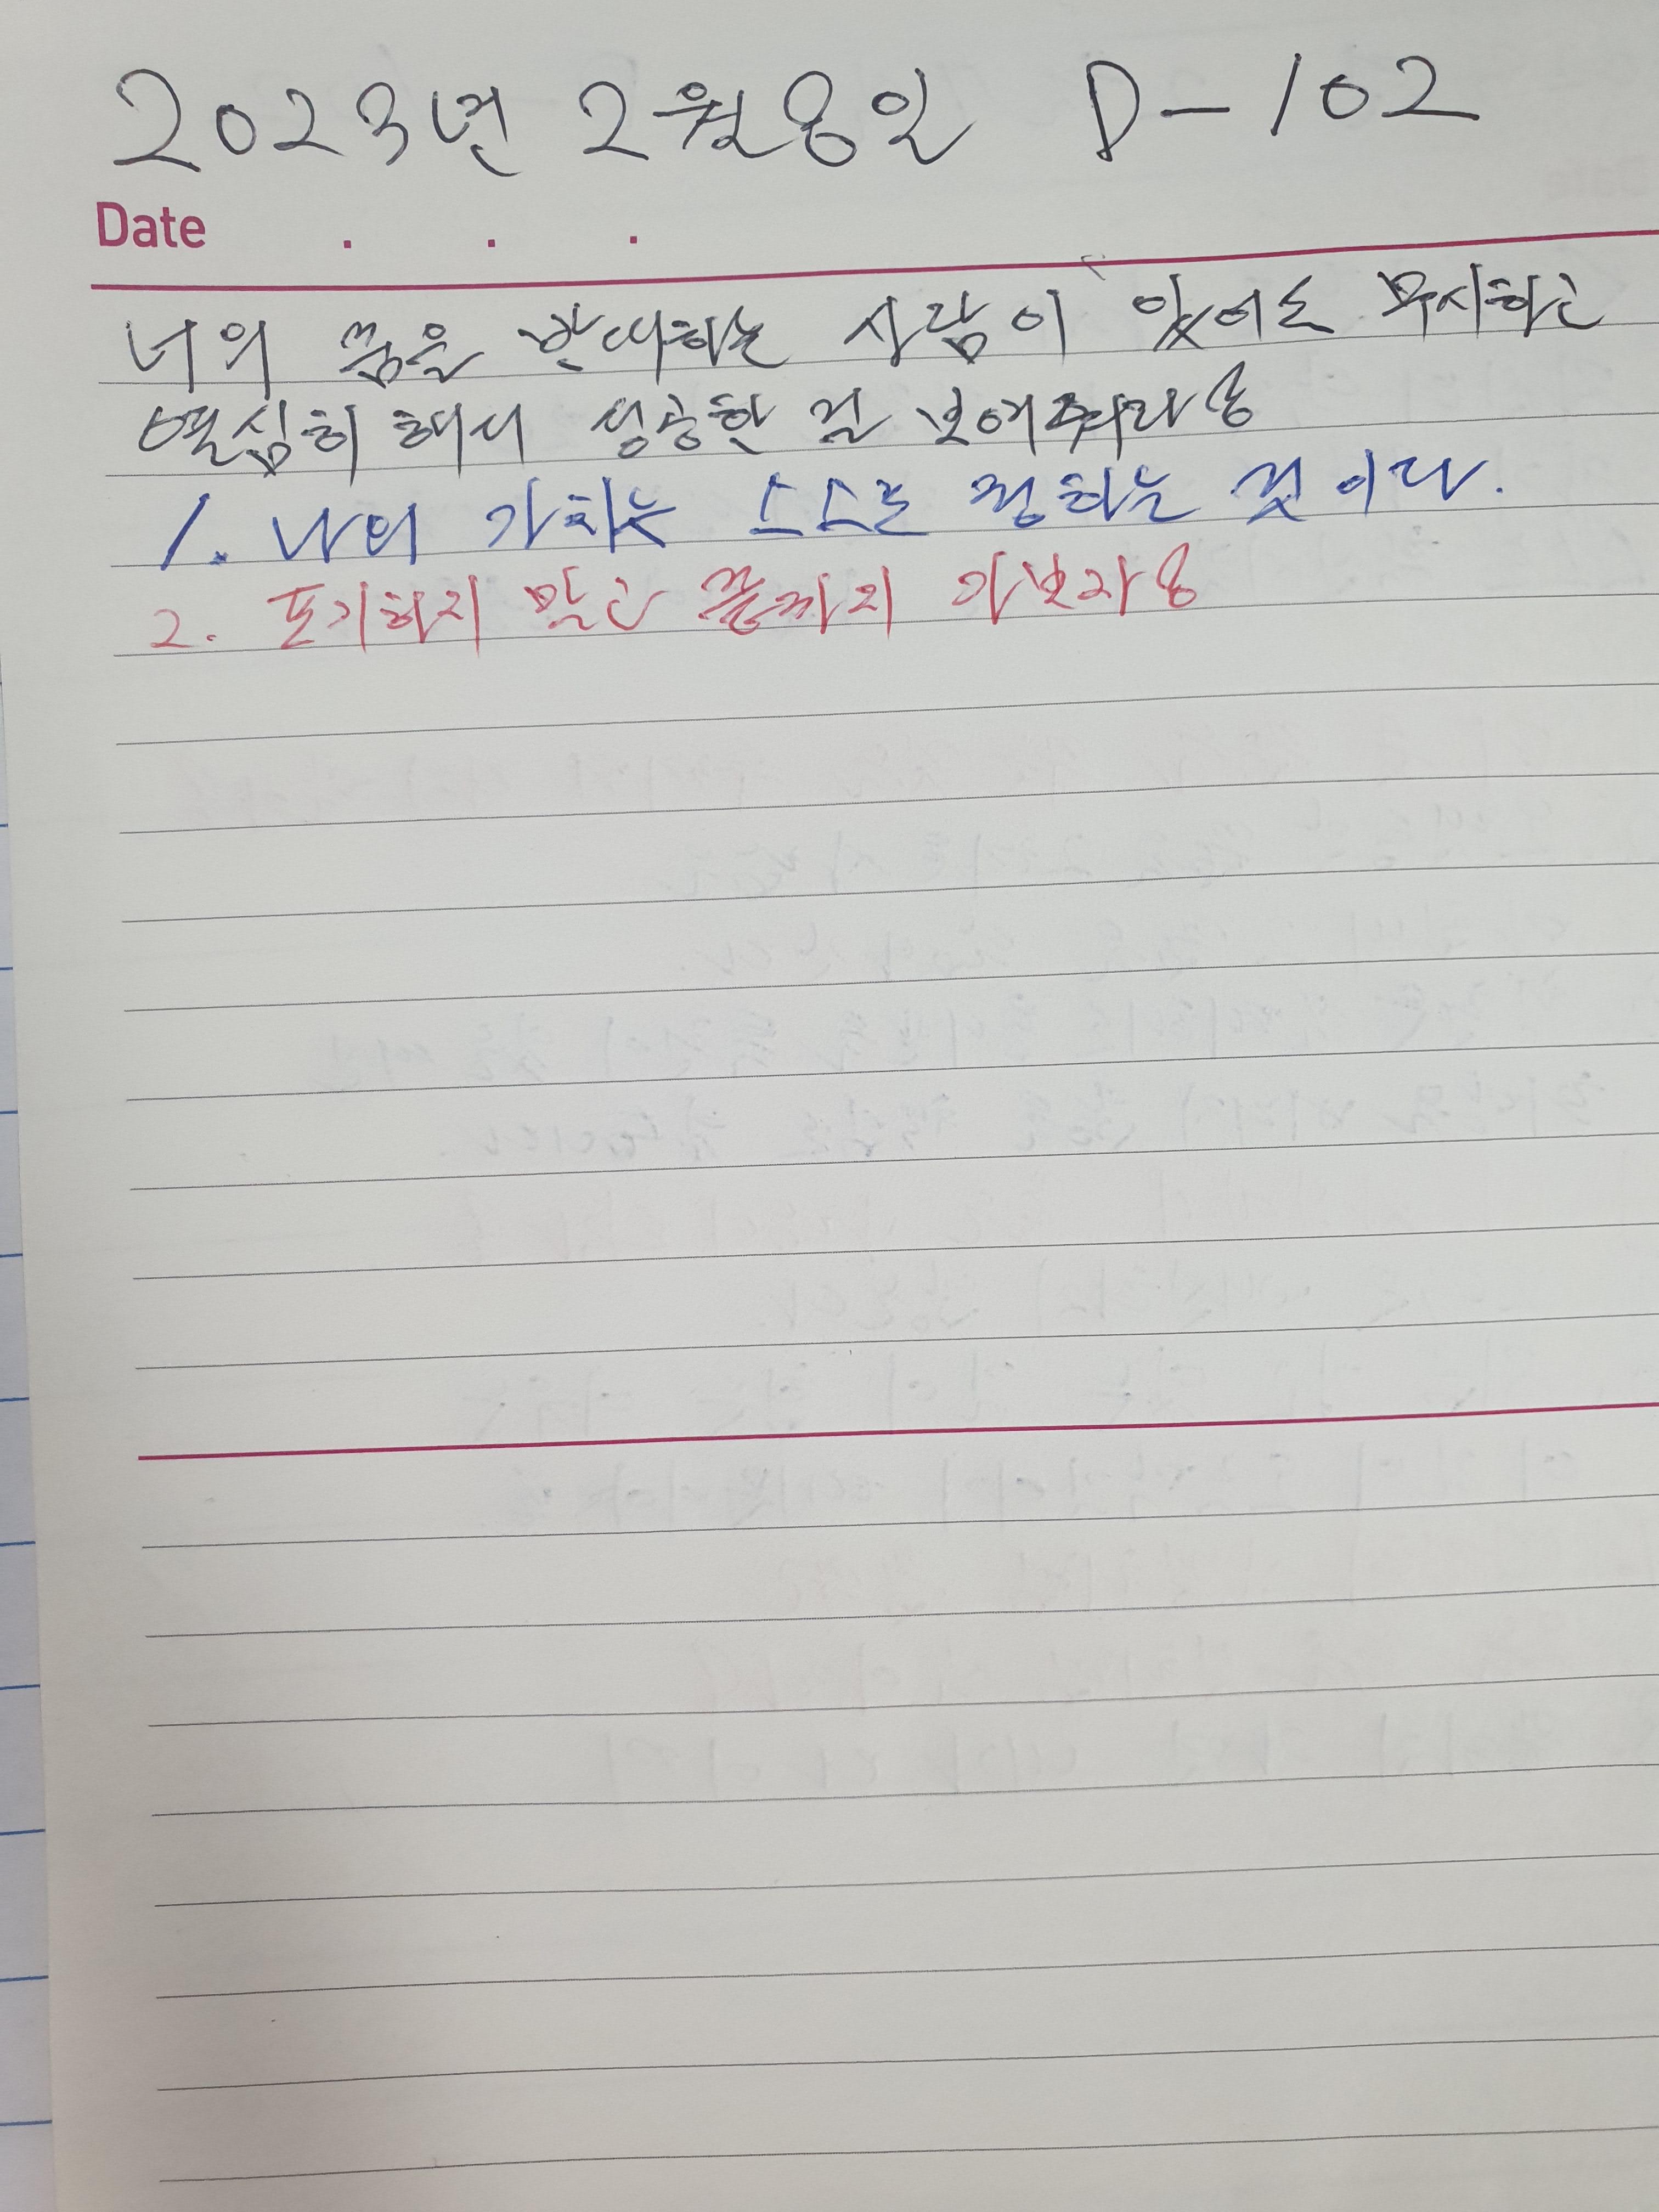 2023년 2월 8일 D-102
Date . . .
너의 꿈을 반대하는 사람이 있어도 무시하고
열심히 해서 성공한 걸 보여줘라용
1. 나의 가치는 스스로 정하는 것이다.
2. 포기하지 말고 끝까지 가보자용